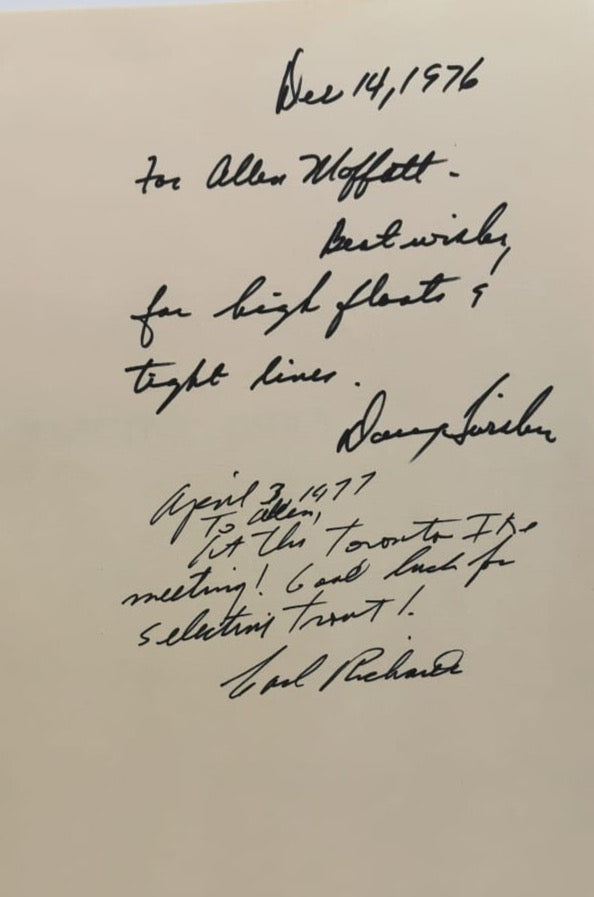 Dec 14, 1976
For Allen Moffatt -
Best wishes,
for high floats &
tight lines.
Doug Swisher
April 3, 1977
To Allen,
At the Toronto Ike
meeting! Good luck for
selective trout!
Carl Richards